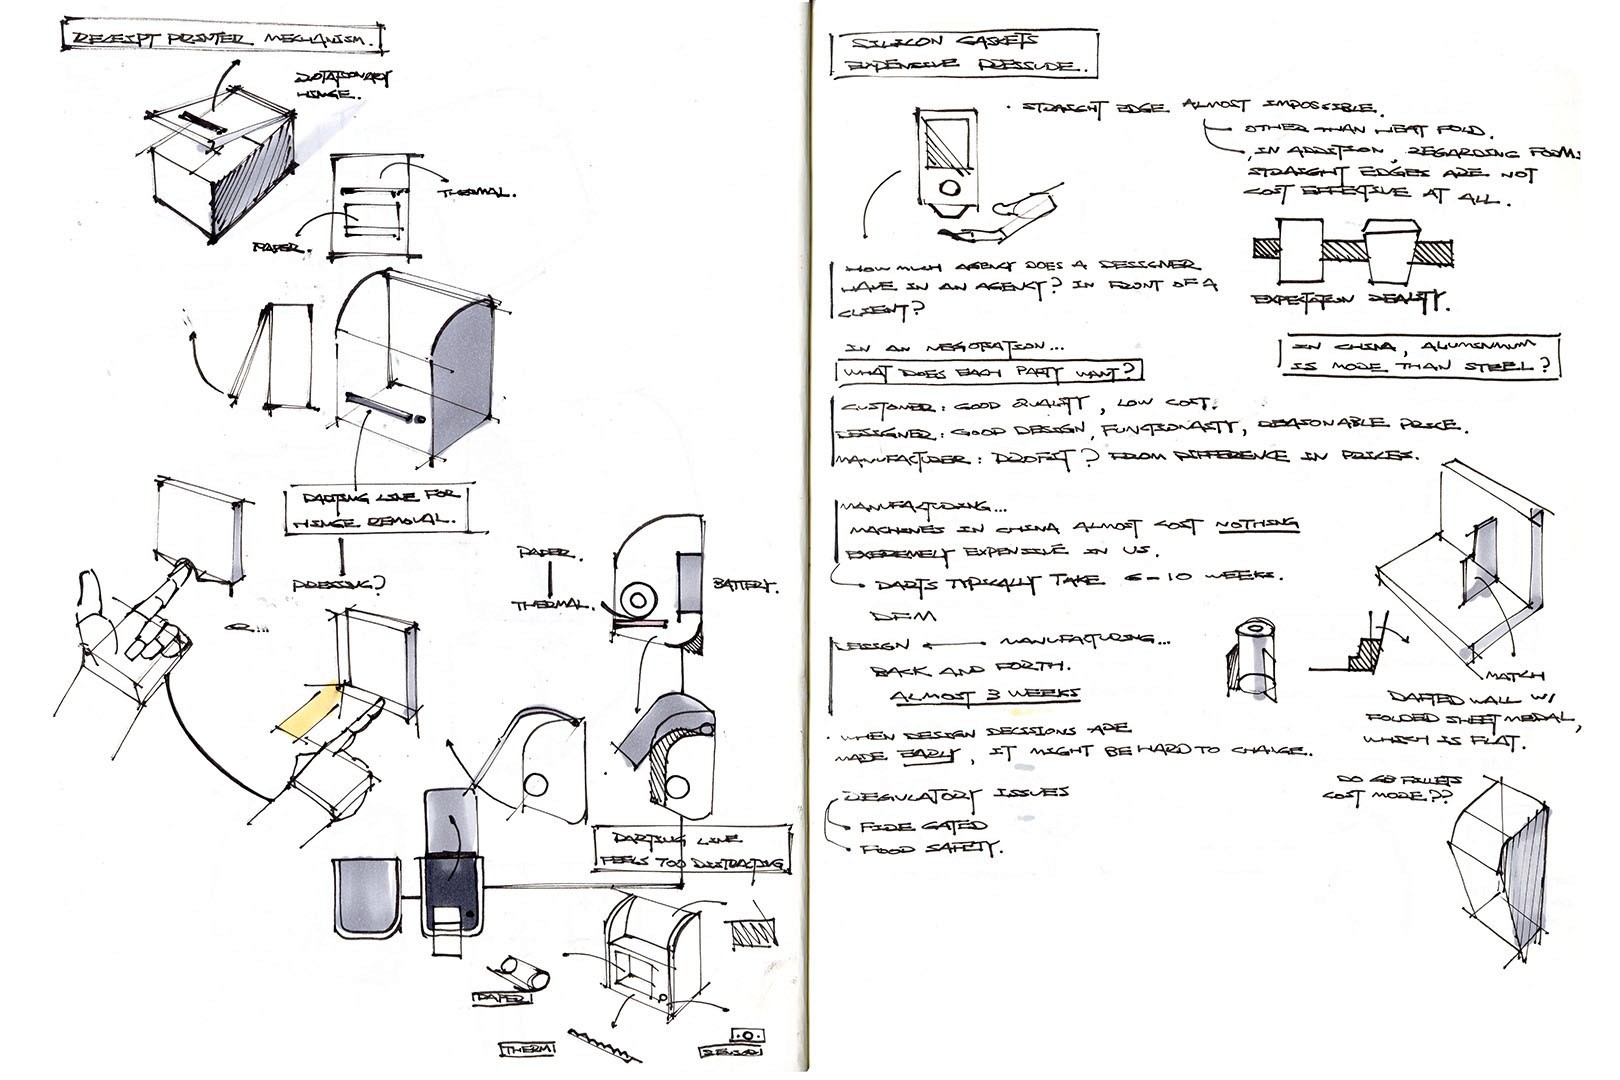 RECEIPT PRINTER MECHANISM.
ROTATIONARY
HINGE.
THERMAL.
PAPER.
PARTING LINE FOR
HINGE REMOVAL.
PRESSING?
OR...
PAPER.
THERMAL.
BATTERY.
PARTING LINE
FEELS TOO DISTRACTING
PAPER
THERM
SILICON GASKETS
EXPENSIVE PRESSURE.
· STRAIGHT EDGE ALMOST IMPOSSIBLE.
OTHER THAN HEAT FOLD.
IN ADDITION, REGARDING FORM:
STRAIGHT EDGES ARE NOT
COST EFFECTIVE AT ALL.
EXPECTATION REALITY.
HOW MUCH AGENCY DOES A DESSIGNER
HAVE IN AN AGENCY? IN FRONT OF A
CLIENT?
IN CHINA, ALUMINIUM
IS MORE THAN STEEL?
IN AN NEGOTIATION...
WHAT DOES EACH PARTY WANT?
CUSTOMER: GOOD QUALITY, LOW COST.
DESSIGNER: GOOD DESIGN, FUNCTIONALITY, REASONABLE PRICE.
MANUFACTURER: PROFIT? FROM DIFFERENCE IN PRICES.
MANUFACTURING...
MACHINES IN CHINA ALMOST COST NOTHING
EXTREMELY EXPENSIVE IN US.
PARTS TYPICALLY TAKE 6-10 WEEKS.
DFM
DESIGN MANUFACTURING...
BACK AND FORTH.
ALMOST 3 WEEKS
· WHEN DESIGN DECISIONS ARE
MADE EARLY, IT MIGHT BE HARD TO CHANGE.
REGULATORY ISSUES
FIRE GATED
FOOD SAFETY.
MATCH
DRAFTED WALL W/
FOLDED SHEET MEDAL,
WHICH IS FLAT.
DO G3 FILLETS
COST MORE??